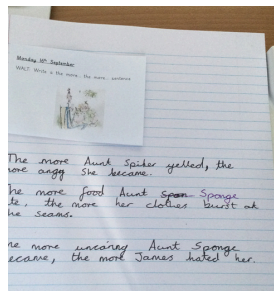 Monday 16th September
WALT: Write a the more, the more, sentence
The more Aunt Spiker yelled, the
more angy she became.
The more food Aunt Sponge
te, the more her clothes burst at
he seams.
he more uncaring Aunt Sponge
ecame, the more James hated her.